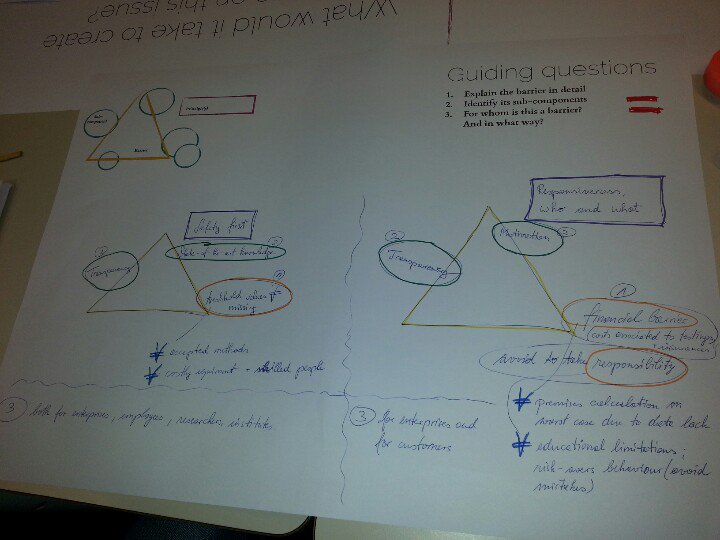 What would it take to create
on this issue?
Guiding questions
1. Explain the barrier in detail
2. Identify its sub-components
3. For whom is this a barrier?
And in what way?
Sub-
component
Barrier
Safety first
1
Transparency
State-of the-art knowledge
threshold values
missing
* accepted methods
* costly equipment - skilled people
3 both for enterprises, employees, researchers, institutes
Responsiveness,
who and what
2
Transparency
Motivation
3
1
financial barrier
(costs associated to testings,
insurances)
avoid to take responsibility
* premises calculation on
worst case due to data lack
* educational limitations,
risk-avers behaviour (avoid
mistakes)
3 for enterprises and
for customers